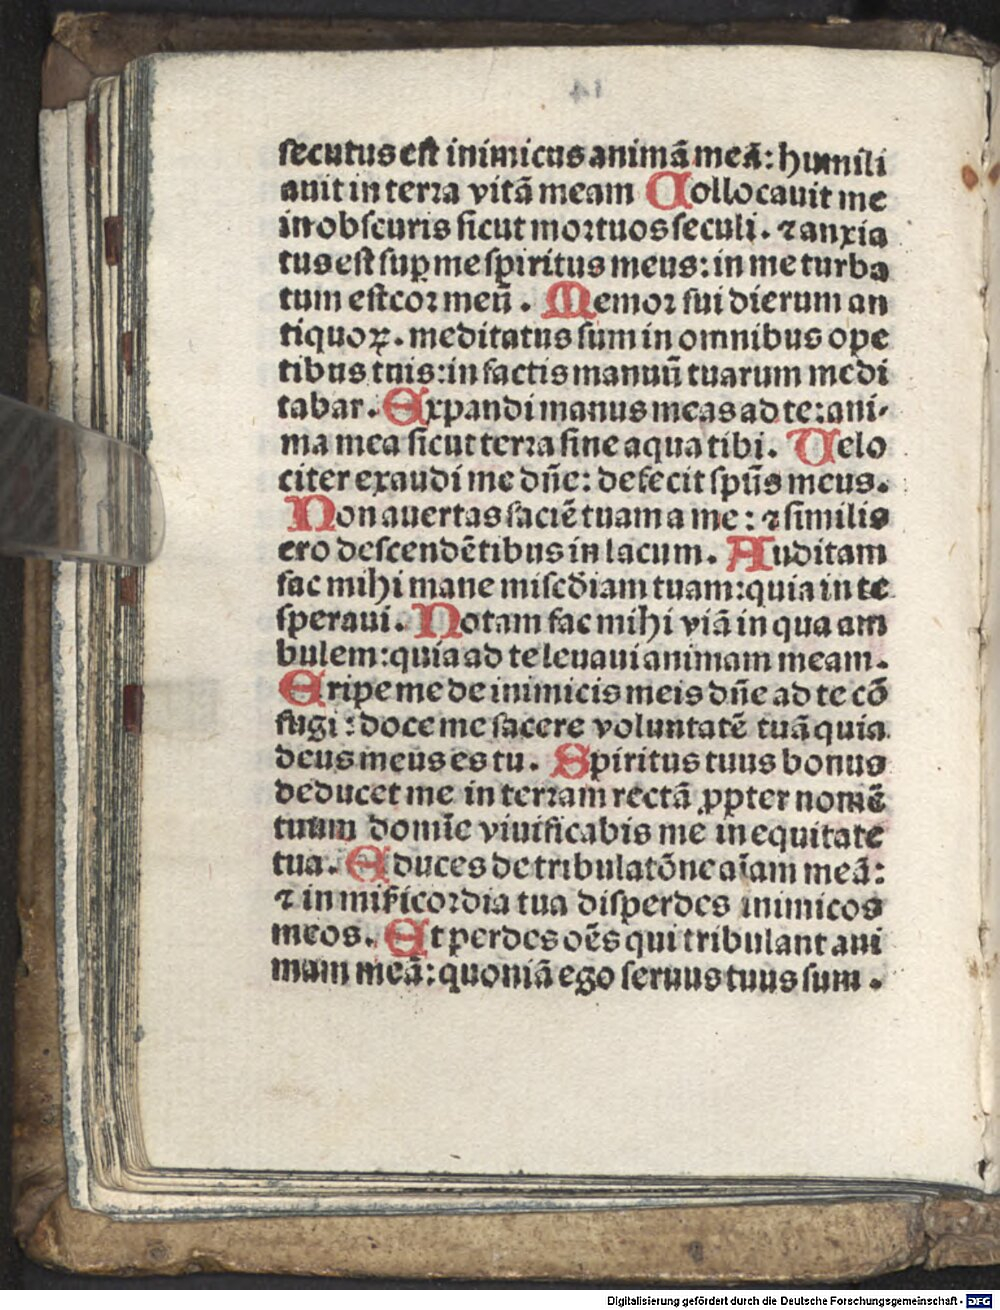 secutus est inimicus animã meã: humili
auit in terra vitã meam Collocauit me
in obscuris sicut mortuos seculi. ⁊ anxia
tus est suꝑ me spiritus meus: in me turba
tum est cor meũ. Memor fui dierum an
tiquoꝝ. meditatus sum in omnibus ope
ribus tuis: in factis manuũ tuarum medi
tabar. Expandi manus meas ad te: ani-
ma mea sicut terra sine aqua tibi. Velo
citer exaudi me dñe: defecit spũs meus.
Non auertas faciẽ tuam a me: ⁊ similis
ero descendẽtibus in lacum. Auditam
fac mihi mane misẽdiam tuam: quia in te
speraui. Notam fac mihi viã in qua am
bulem: quia ad te leuaui animam meam.
Eripe me de inimicis meis dñe ad te cõ
fugi: doce me facere voluntatẽ tuã quia
deus meus es tu. Spiritus tuus bonus
deducet me in terram rectã ꝓpter nomẽ
tuum domĩe viuificabis me in equitate
tua. Educes de tribulatõne aĩam meã:
⁊ in mīsicordia tua disperdes inimicos
meos. Et perdes oẽs qui tribulant ani
mam meã: quoniã ego seruus tuus sum.
Digitalisierung gefördert durch die Deutsche Forschungsgemeinschaft - DFG